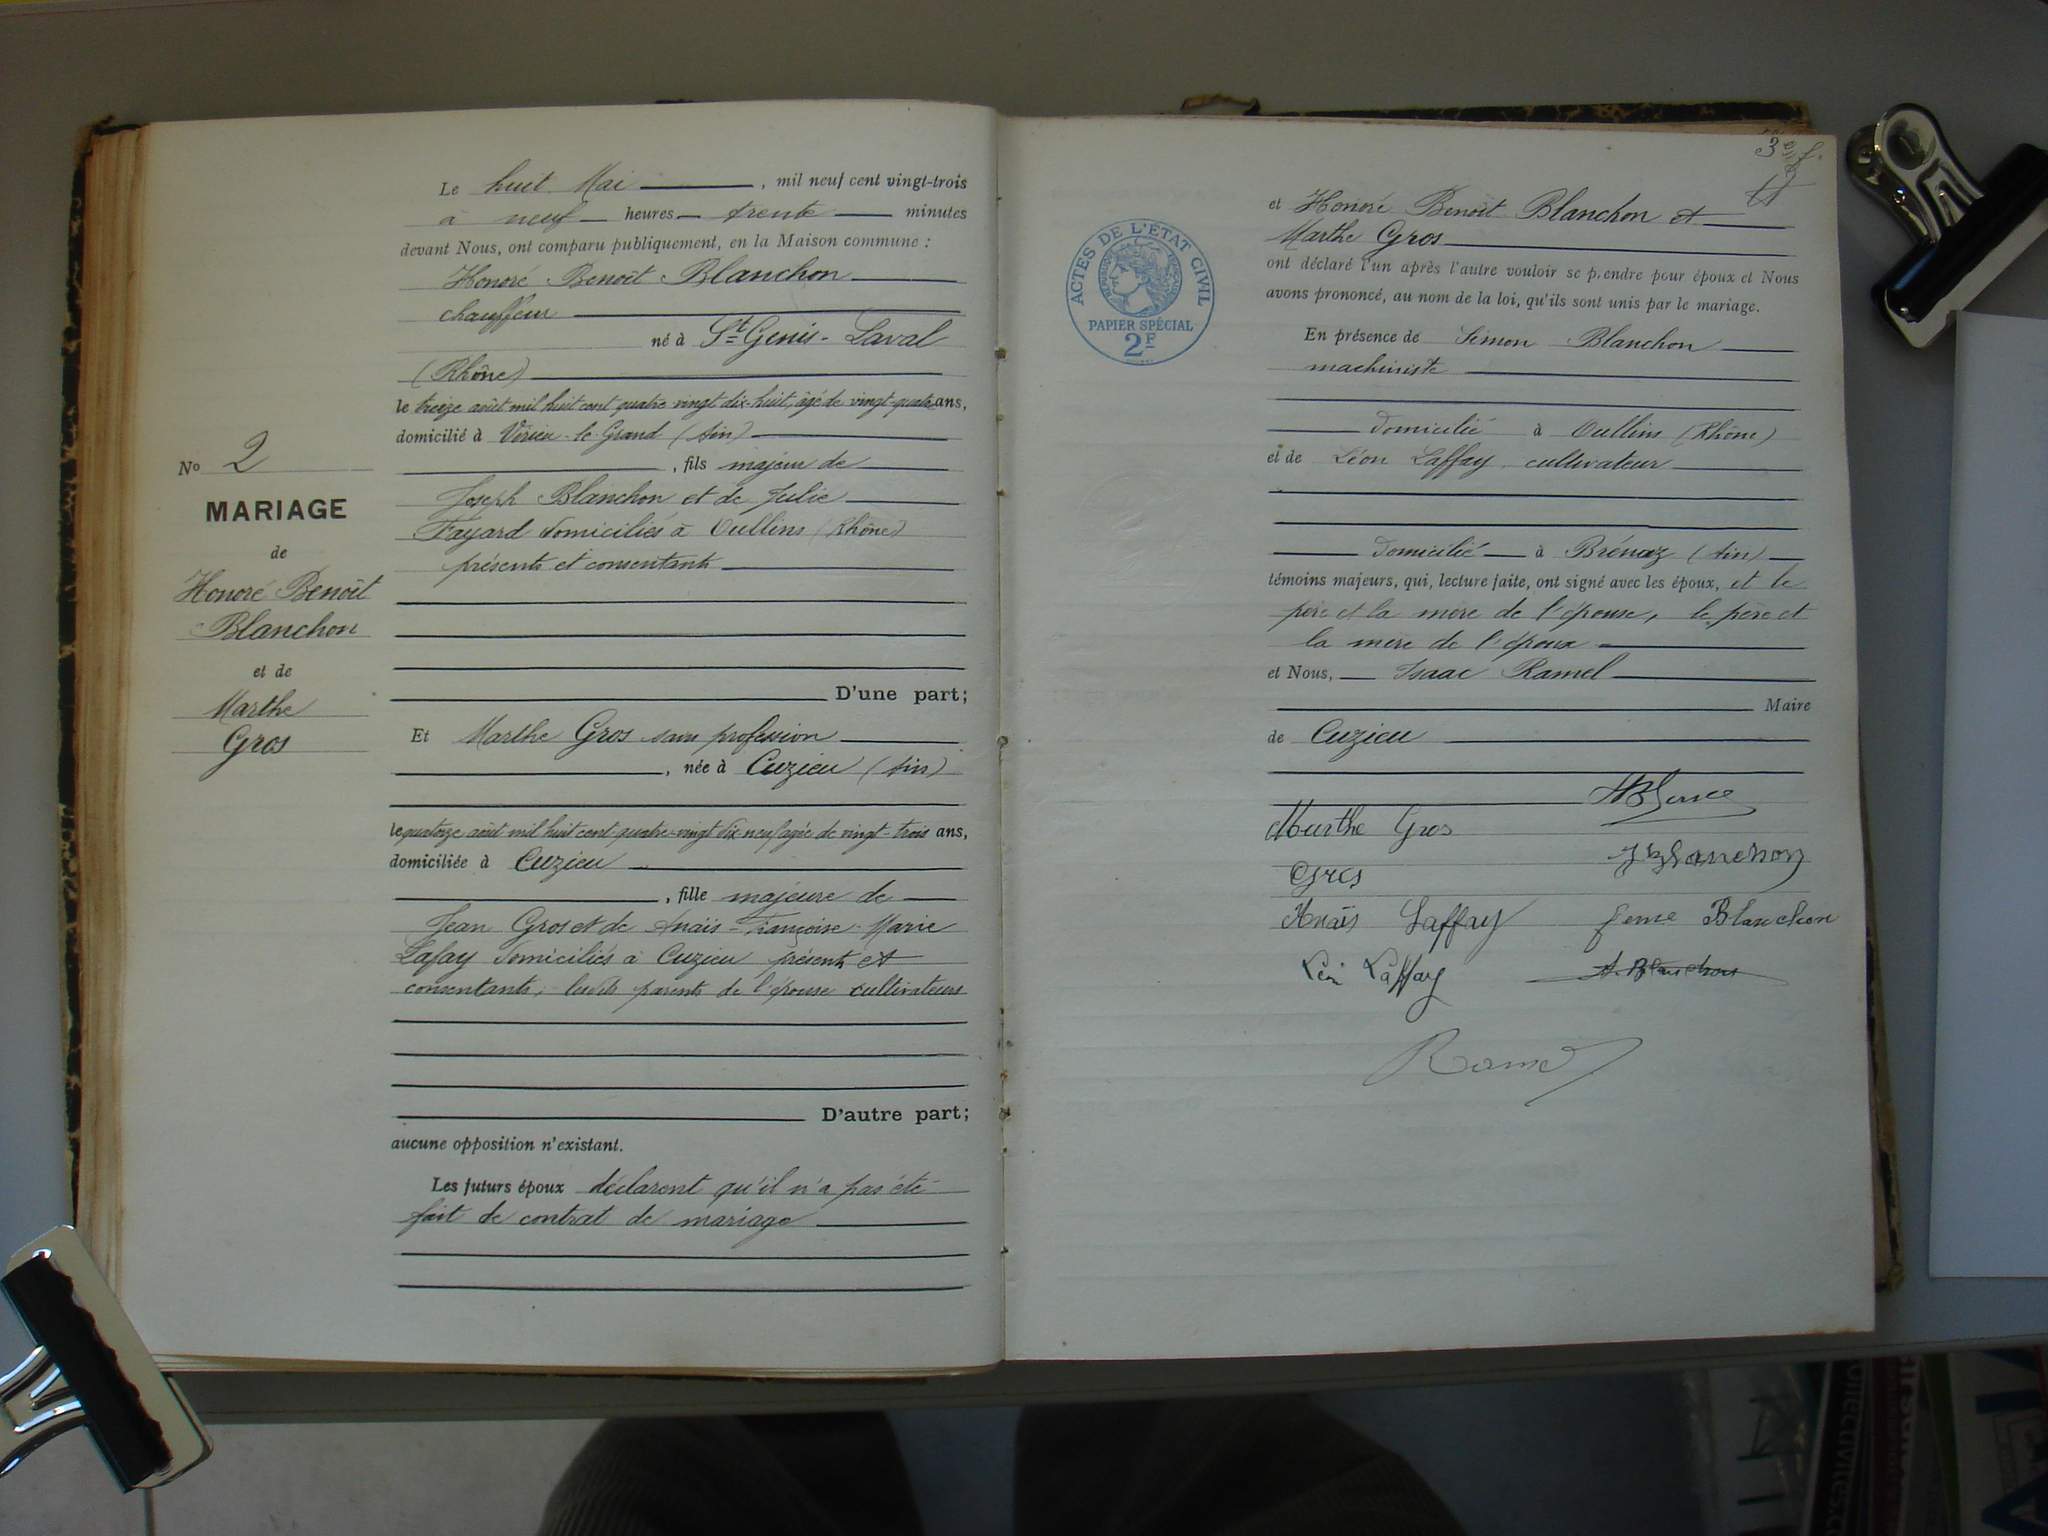 Le huit Mai, mil neuf cent vingt-trois
à neuf heures trente minutes
devant Nous, ont comparu publiquement, en la Maison commune :
Honoré Benoît Blanchon
chauffeur
né à St Genis-Laval
(Rhône)
le treize août mil huit cent quatre vingt dix-huit, âgé de vingt-quatre ans,
domicilié à Virieu-le-Grand (Ain)
, fils majeur de
Joseph Blanchon et de Julie
Fayard domiciliés à Oullins (Rhône)
présents et consentants
D'une part;
No 2
MARIAGE
de
Honoré Benoît
Blanchon
et de
Marthe
Gros
Et Marthe Gros sans profession
, née à Cuzieu (Ain)
le quatorze août mil huit cent quatre-vingt dix neuf agée de vingt-trois ans,
domiciliée à Cuzieu
, fille majeure de
Jean Gros et de Anaïs-Françoise-Marie
Lafay domiciliés à Cuzieu présents et
consentants, lesdits parents de l'épouse cultivateurs
D'autre part;
aucune opposition n'existant.
Les futurs époux déclarent qu'il n'a pas été
fait de contrat de mariage
3e f.
ACTES DE L'ÉTAT CIVIL
PAPIER SPÉCIAL
2F
et Honoré Benoît Blanchon et
Marthe Gros
ont déclaré l'un après l'autre vouloir se prendre pour époux et Nous
avons prononcé, au nom de la loi, qu'ils sont unis par le mariage.
En présence de Simon Blanchon
machiniste
domicilié à Oullins (Rhône)
et de Léon Laffay cultivateur
domicilié à Brénaz (Ain)
témoins majeurs, qui, lecture faite, ont signé avec les époux, et le
père et la mère de l'épouse, le père et
la mère de l'époux
et Nous, Isaac Ramel
Maire
de Cuzieu
Marthe Gros
J Blanchon
Gros
Anaïs Laffay feme Blanchon
Léon Laffay A. Blanchon
Ramel